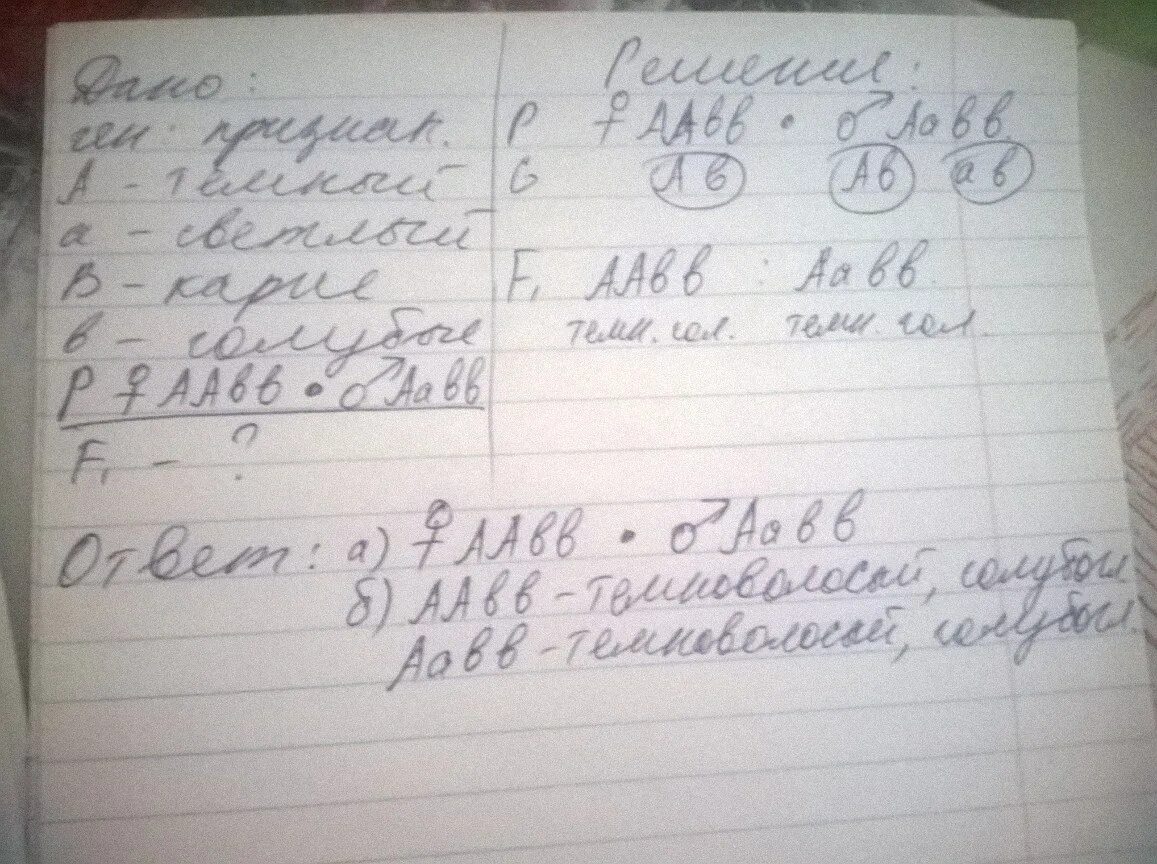 Дано:
ген: признак.
А - темный
а - светлый
В - карие
в - голубые
Р ♀ ААвв • ♂ Аавв
F₁ - ?
Решение:
Р ♀ ААвв • ♂ Аавв
G Ав Ав ав
F₁ ААвв : Аавв
темн. гол. темн. гол.
Ответ: а) ♀ ААвв • ♂ Аавв
б) ААвв - темноволосый, голубогл.
Аавв - темноволосый, голубогл.